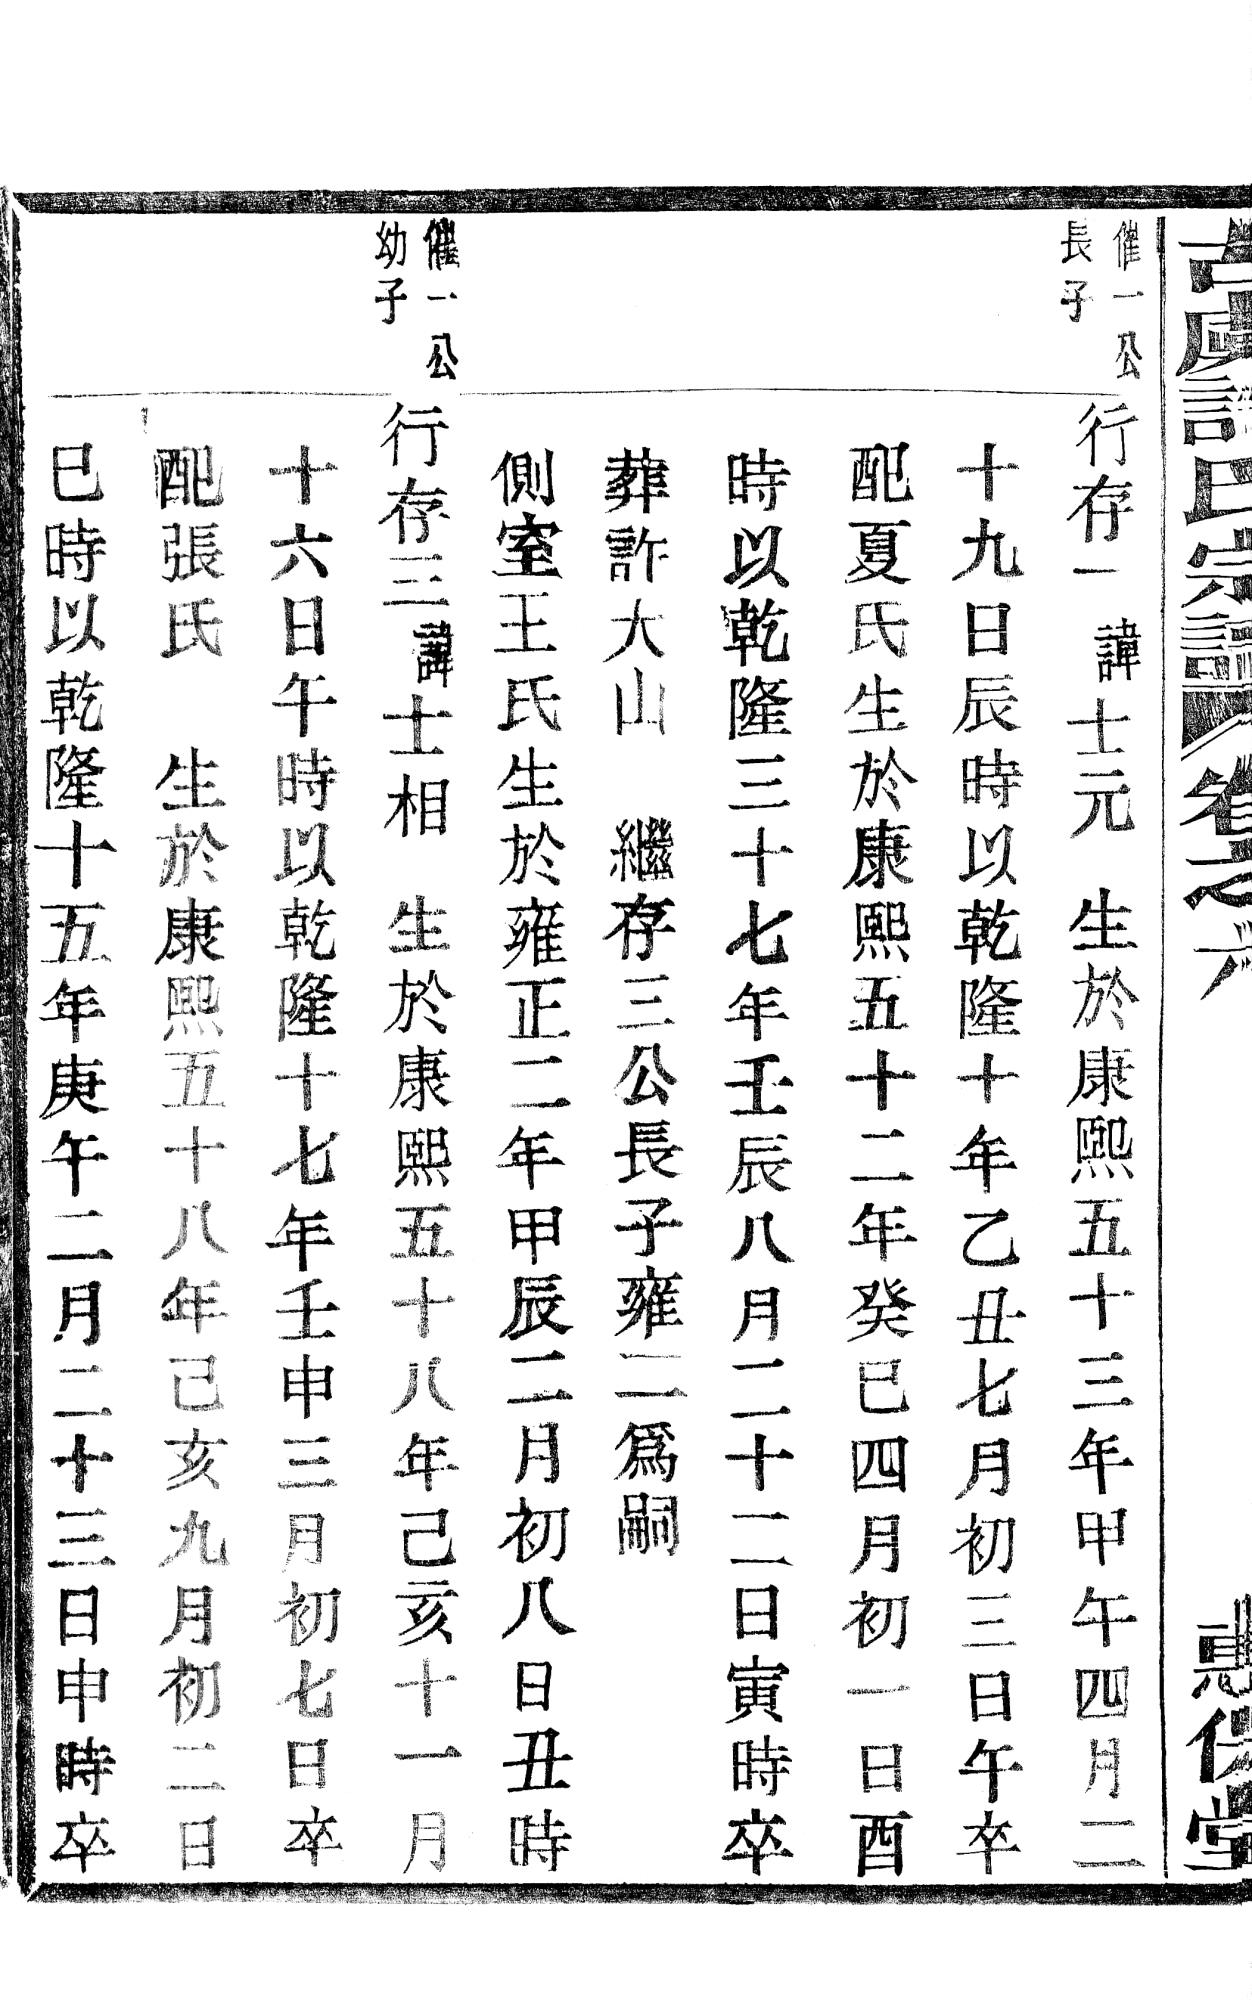 古虞許氏宗譜 卷之六
惇倫堂
催一公
長子
行存一 諱士元 生於康熙五十三年甲午四月二
十九日辰時以乾隆十年乙丑七月初三日午卒
配夏氏生於康熙五十二年癸巳四月初一日酉
時以乾隆三十七年壬辰八月二十二日寅時卒
葬許大山 繼存三公長子雍二爲嗣
側室王氏生於雍正二年甲辰二月初八日丑時
催一公
幼子
行存三諱士相 生於康熙五十八年己亥十一月
十六日午時以乾隆十七年壬申三月初七日卒
配張氏 生於康熙五十八年己亥九月初二日
巳時以乾隆十五年庚午二月二十三日申時卒